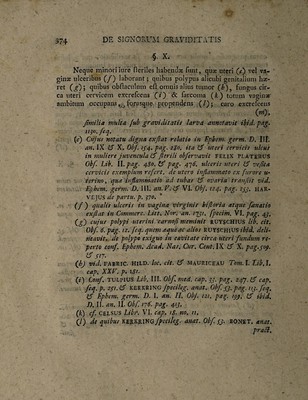 274 DE SIGNORUM GRAVIDITATIS
§ X.
Neque minori jure steriles habendæ sunt, quæ uteri (e) vel va-
ginæ ulceribus (f) laborant; quibus polypus aliculi genitalium hæ-
ret (g); quibus obstaculum est omnis alius tumor (h), fungus cir-
ca uteri cervicem excrescens (i) & sarcoma (k) totum vaginæ
ambitum occupans, forasque propendens (l); caro excrescens
(m),
similia multa sub graviditatis larva annotavit ibid. pag.
1190. seq.
(e) Cujus notatu digna exstat relatio in Ephem. germ. D. III.
an. IX & X. Obs. 154. pag. 280. ita & uteri cervicis ulcus
in muliere juvencula & sterili observavit FELIX PLATERUS
Obs. Lib. II. pag. 482. & pag. 476. ulceris uteri & vesicæ
cervicis exemplum refert. de utero inflammato ex furore u-
terino, qua inflammatio ad tubas & ovaria transiit vid.
Ephem. germ. D. III. an. V. & VI. Obs. 114. pag. 255. HAR-
VEJUS de partu. p. 370.
(f) qualis ulceris in vagina virginis bisioria atque sanatio
exstat in Commerc. Litt. Nor. an. 1731. specim. VI. pag. 43.
(g) cujus polypi uterini varmò meminit RUYSCHIUS lib. cit.
Obs. 6. pag. 12. seq. quem aquæ ac aliis RUYSCHIUS ibid. deli-
neavit. de polypo exiguo in cavitate circa uteri fundum re-
perto conf. Ephem. Acad. Nat. Cur. Cent. IX & X. pag. 519.
& 517.
(h) vid. FABRIC. HILD. loc. cit. & MAURICEAU Tom. I. Lib. I.
cap. XXV. p. 181.
(i) Conf. TULPIUS Lib. III. Obs. med. cap. 33. pag. 247. & cap.
seq. p. 251. & KERKRING spicileg. anat. Obs. 53. pag. 113. seq.
& Ephem. germ. D. I. an. II. Obs. 121. pag. 199. & ibid.
D. II. an. II. Obs. 176. pag. 403.
(k) cf. CELSUS Libr. VI. cap. 18. no. 11.
(l) de quibus KERKRING spicileg. anat. Obs. 53. BONET. anat.
pract.